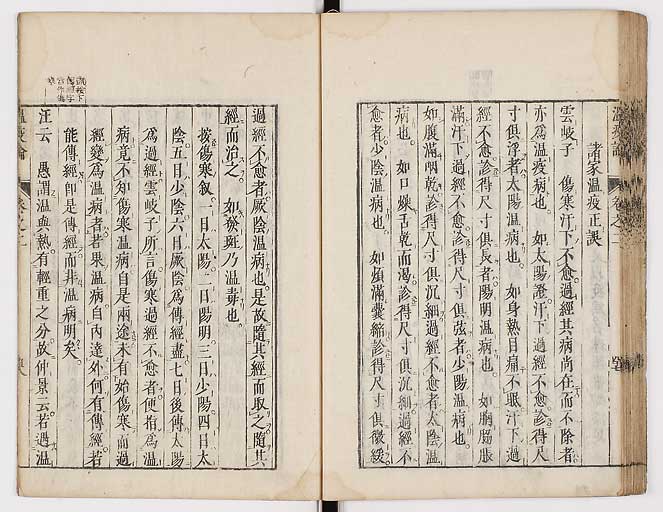 諸家温疫正誤
雲岐子　傷寒汗下不愈過經其病尚在而不除者
亦爲温疫病也　如太陽證汗下過經不愈診得尺
寸俱浮者太陽温病也　如身熱目痛不眠汗下過
經不愈診得尺寸俱長者陽明温病也　如胸脇脹
滿汗下過經不愈診得尺寸俱弦者少陽温病也
如腹滿咽乾診得尺寸俱沉細過經不愈者太陰温
病也　如口燥舌乾而渴診得尺寸俱沉細過經不
愈者少陰温病也　如煩滿囊縮診得尺寸俱微緩
過經不愈者厥陰温病也是故隨其經而取之隨其
經而治之　如發斑乃温毒也
按傷寒叙一日太陽二日陽明三日少陽四日太
陰五日少陰六日厥陰爲傳經盡七日後傳太陽
爲過經雲岐子所言傷寒過經不愈者便指爲温
病竟不知傷寒温病自是兩途未有始傷寒而過
經變爲温病者若果温病自内達外何有傳經若
能傳經即是傳經而非温病明矣
汪云　愚謂温與熱有輕重之分故仲景云若遇温